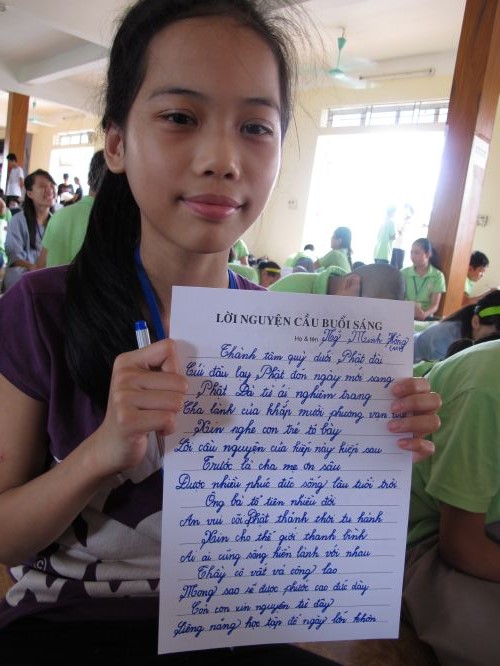 LỜI NGUYỆN CẦU BUỔI SÁNG
Họ & tên Ngô Minh Hồng
Thành tâm quỳ dưới Phật đài
Cúi đầu lạy Phật đón ngày mới sang
Phật Đà từ ái nghiêm trang
Tha lành cứu khắp mười phương vạn loài
Xin nghe con trẻ tỏ bày
Lời cầu nguyện của kiếp này kiếp sau
Trước là cha mẹ ơn sâu
Được nhiều phúc đức sống lâu tuổi trời
Ông bà tổ tiên nhiều đời
An vui cõi Phật thảnh thơi tu hành
Xin cho thế giới thanh bình
Ai ai cũng sống hiền lành với nhau
Thầy cô vất vả công lao
Mong sao sẽ được phước cao đức dày
Còn con xin nguyện từ đây
Siêng năng học tập để ngày lớn khôn